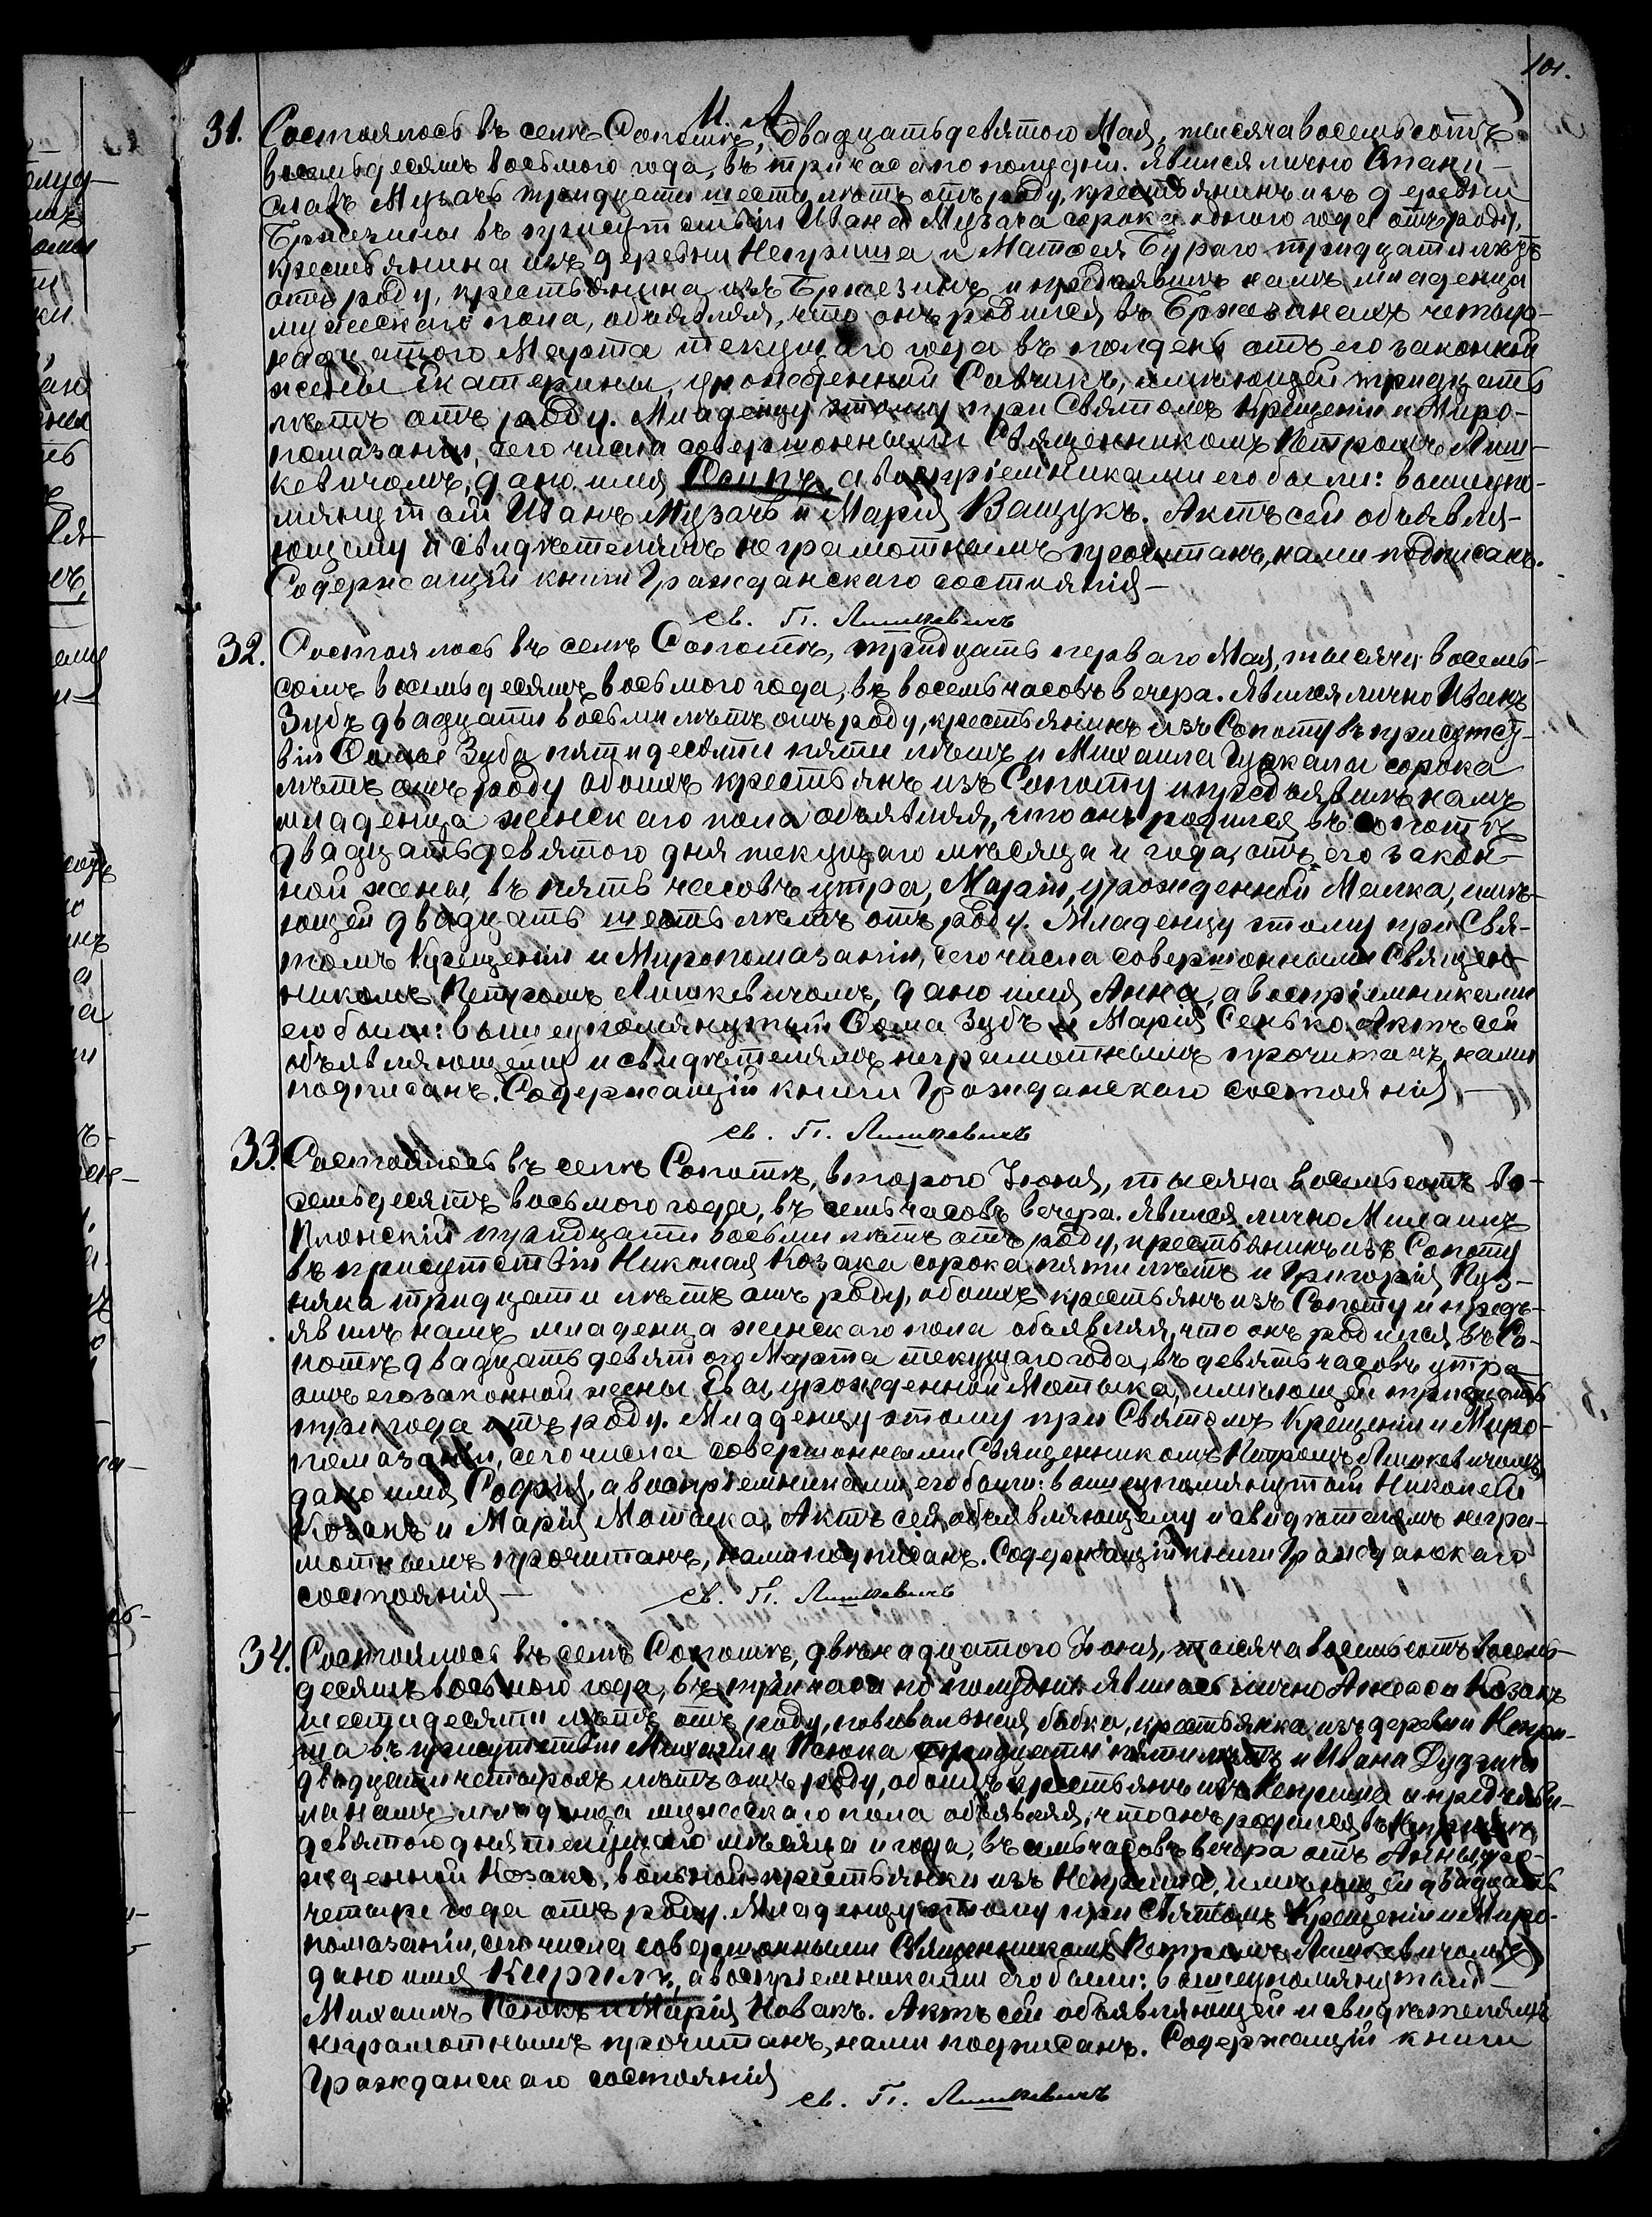 101.
И. А
31. Состоялось въ селѣ Сопотѣ, двадцать девятого Мая, тысяча восемьсотъ
восемьдесятъ восьмого года, въ три часа по полудни. Явился лично Стани-
славъ Музачъ тридцати шести лѣтъ отъ роду, крестьянинъ изъ деревни
Бржезины въ присутствіи Ивана Музача сорока одного года отъ роду,
крестьянина изъ деревни Неприша и Матѳея Бураго тридцати лѣтъ
отъ роду, крестьянина изъ Бржезинъ и предъявилъ намъ младенца
мужескаго пола, объявляя, что онъ родился въ Бржезинахъ четыр-
надцатого Марта текущаго года въ полдень отъ его законной
жены Екатерины, урожденной Савчикъ, имѣющей тридцать
лѣтъ отъ роду. Младенцу этому при Святомъ Крещеніи и Миро-
помазаніи, сего числа совершонными Священникомъ Петромъ Лиш-
кевичомъ, дано имя Осипъ, а воспріемниками его были: вышеупо-
мянутый Иванъ Музачъ и Марія Ващукъ. Актъ сей объявля-
ющему и свидѣтелямъ неграмотнымъ прочитанъ, нами подписанъ.
Содержащій книги Гражданскаго состоянія —
Св. П. Лишкевичъ
32. Состоялось въ селѣ Сопотѣ, тридцать перваго Мая, тысяча восемь-
сотъ восемьдесятъ восьмого года, въ восемь часовъ вечера. Явился лично Иванъ
Зубъ двадцати восьми лѣтъ отъ роду, крестьянинъ изъ Сопоту въ присутст-
віи Ѳомы Зуба пятидесяти пяти лѣтъ и Михаила Гуркали сорока
лѣтъ отъ роду обоихъ крестьянъ изъ Сопоту и предъявилъ намъ
младенца женскаго пола объявляя, что онъ родился въ Сопотѣ
двадцать девятого дня текущаго мѣсяца и года, отъ его закон-
ной жены, въ пять часовъ утра, Маріи, урожденной Малка, имѣ-
ющей двадцать шесть лѣтъ отъ роду. Младенцу этому при Свя-
томъ Крещеніи и Миропомазаніи, сего числа совершонными Священ-
никомъ Петромъ Лишкевичомъ, дано имя Анна, а воспріемниками
его были: вышеупомянутый Ѳома Зубъ и Марія Сенько. Актъ сей
объявляющему и свидѣтелямъ неграмотнымъ прочитанъ, нами
подписанъ. Содержащій книги Гражданскаго состоянія —
Св. П. Лишкевичъ
33. Состоялось въ селѣ Сопотѣ, второго Іюня, тысяча восемьсотъ во-
семьдесятъ восьмого года, въ семь часовъ вечера. Явился лично Михаилъ
Плонскій тридцати восьми лѣтъ отъ роду, крестьянинъ изъ Сопоту
въ присутствіи Николая Козака сорока пяти лѣтъ и Григорія Пуз-
няка тридцати лѣтъ отъ роду, обоихъ крестьянъ изъ Сопоту и предъ-
явилъ намъ младенца женскаго пола объявляя, что онъ родился въ Со-
потѣ двадцать девятого Марта текущаго года, въ девять часовъ утра
отъ его законной жены Евы, урожденной Мотыка, имѣющей тридцать
три года отъ роду. Младенцу этому при Святомъ Крещеніи и Миро-
помазаніи, сего числа совершонными Священникомъ Петромъ Лишкевичомъ,
дано имя Софія, а воспріемниками его были: вышеупомянутый Николай
Козакъ и Марія Мотыка. Актъ сей объявляющему и свидѣтелямъ негра-
мотнымъ прочитанъ, нами подписанъ. Содержащій книги Гражданскаго
состоянія — Св. П. Лишкевичъ
34. Состоялось въ селѣ Сопотѣ, двѣнадцатого Іюня, тысяча восемьсотъ восемь-
десятъ восьмого года, въ три часа по полудни. Явилась лично Козакъ
шестидесяти лѣтъ отъ роду, повивальная бабка, крестьянка изъ деревни Непри-
ша въ присутствіи Михаила Псюка тридцати пяти лѣтъ и Ивана
двадцати четырехъ лѣтъ отъ роду, обоихъ крестьянъ изъ Неприша и предъяви-
ла намъ младенца мужескаго пола объявляя, что онъ родился въ Непришѣ
девятого дня текущаго мѣсяца и года, въ семь часовъ вечера отъ Анны, уро-
жденной Козакъ, вольной крестьянки изъ Неприша, имѣющей двадцать
четыре года отъ роду. Младенцу этому при Святомъ Крещеніи и Миро-
помазаніи, сего числа совершонными Священникомъ Петромъ Лишкевичомъ
дано имя Кирилъ, а воспріемниками его были: вышеупомянутый
Михаилъ Псюкъ и Марія Новакъ. Актъ сей объявляющей и свидѣтелямъ
неграмотнымъ прочитанъ, нами подписанъ. Содержащій книги
Гражданскаго состоянія
Св. П. Лишкевичъ